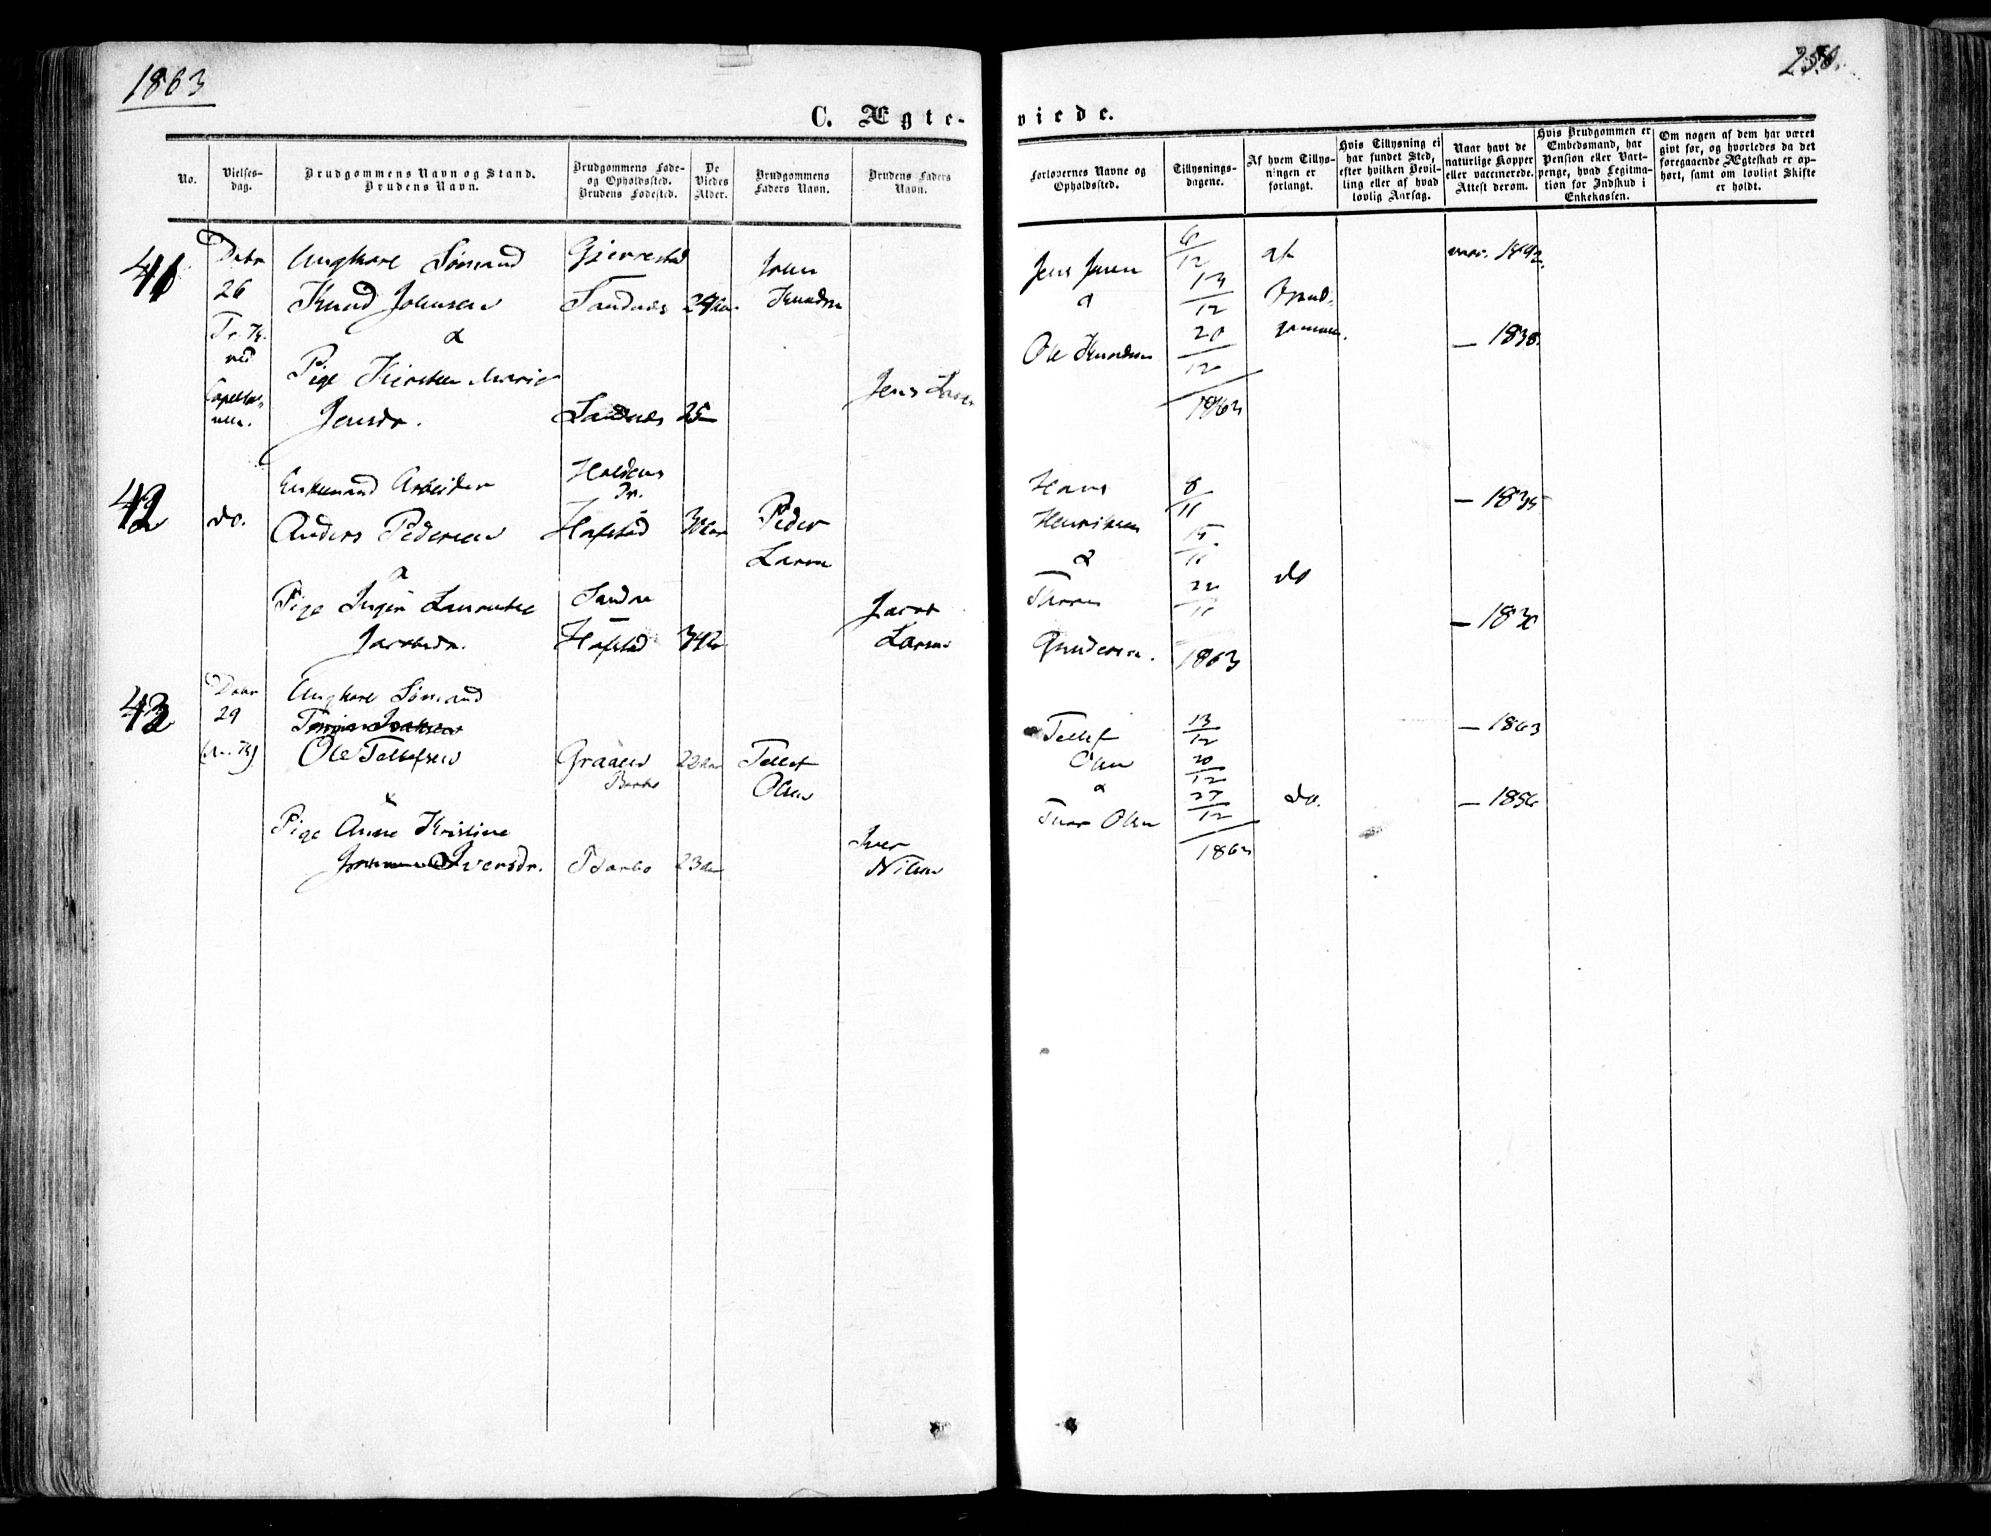 1863
250.
C. Ægte-
viede.
No.
Vielses-
dag.
Brudgommens Navn og Stand.
Brudens Navn.
Brudgommens Føde-
og Opholdssted.
Brudens Fødested.
De
Viedes
Alder.
Brudgommens
Faders Navn.
Brudens Faders
Navn.
Forlovernes Navne og
Opholdssted.
Tillysnings-
dagene.
Af hvem Tillys-
ningen er
forlangt.
Hvis Tillysning ei
har fundet Sted,
efter hvilken Bevil-
ling eller af hvad
lovlig Aarsag.
Naar havt de
naturlige Kopper
eller vaccinerede.
Attest derom.
Hvis Brudgommen er
Embedsmand, har
Pension eller Vart-
penge, hvad Legitima-
tion for Indskud i
Enkekassen.
Om nogen af dem har været
givt før, og hvorledes da det
foregaaende Ægteskab er op-
hørt, samt om lovligt Skifte
er holdt.
41
Decbr
26
Tr. K.
ved
Capella-
nen.
Ungkarl Sömand
Knud Johnsen
&
Pige Kirsten Marie
Jensdr.
Gjerrestad
Sandnes
Sandnes
25
John
Knudsen
Jens Larsen
Jens Jensen
&
Ole Knudsen
6/12
13/12
20/12
1863
af
Brud-
gommen.
vac. 1842.
— 1838.
42
do.
Enkemand Arbeider
Anders Pedersen
&
Pige Inger Laurentse
Jacobsdr.
Holdens
Pr.
Hafstad
Hafstad
Peder
Larsen
Jacob
Larsen
Hans
Henriksen
&
Gundersen.
8/11
15/11
22/11
1863
do
— 1835
— 1830
43
Decbr
29
Ungkarl Sömand
Ole Tellefsen
&
Pige Anne Kristine
Iversdr.
Barbo
Barbo
22 Aar
23 Aar
Tellef
Olsen
Iver
Nilsen
Tellef
Olsen
&
Thor Olsen
13/12
20/12
27/12
1863
do.
— 1863
— 1856